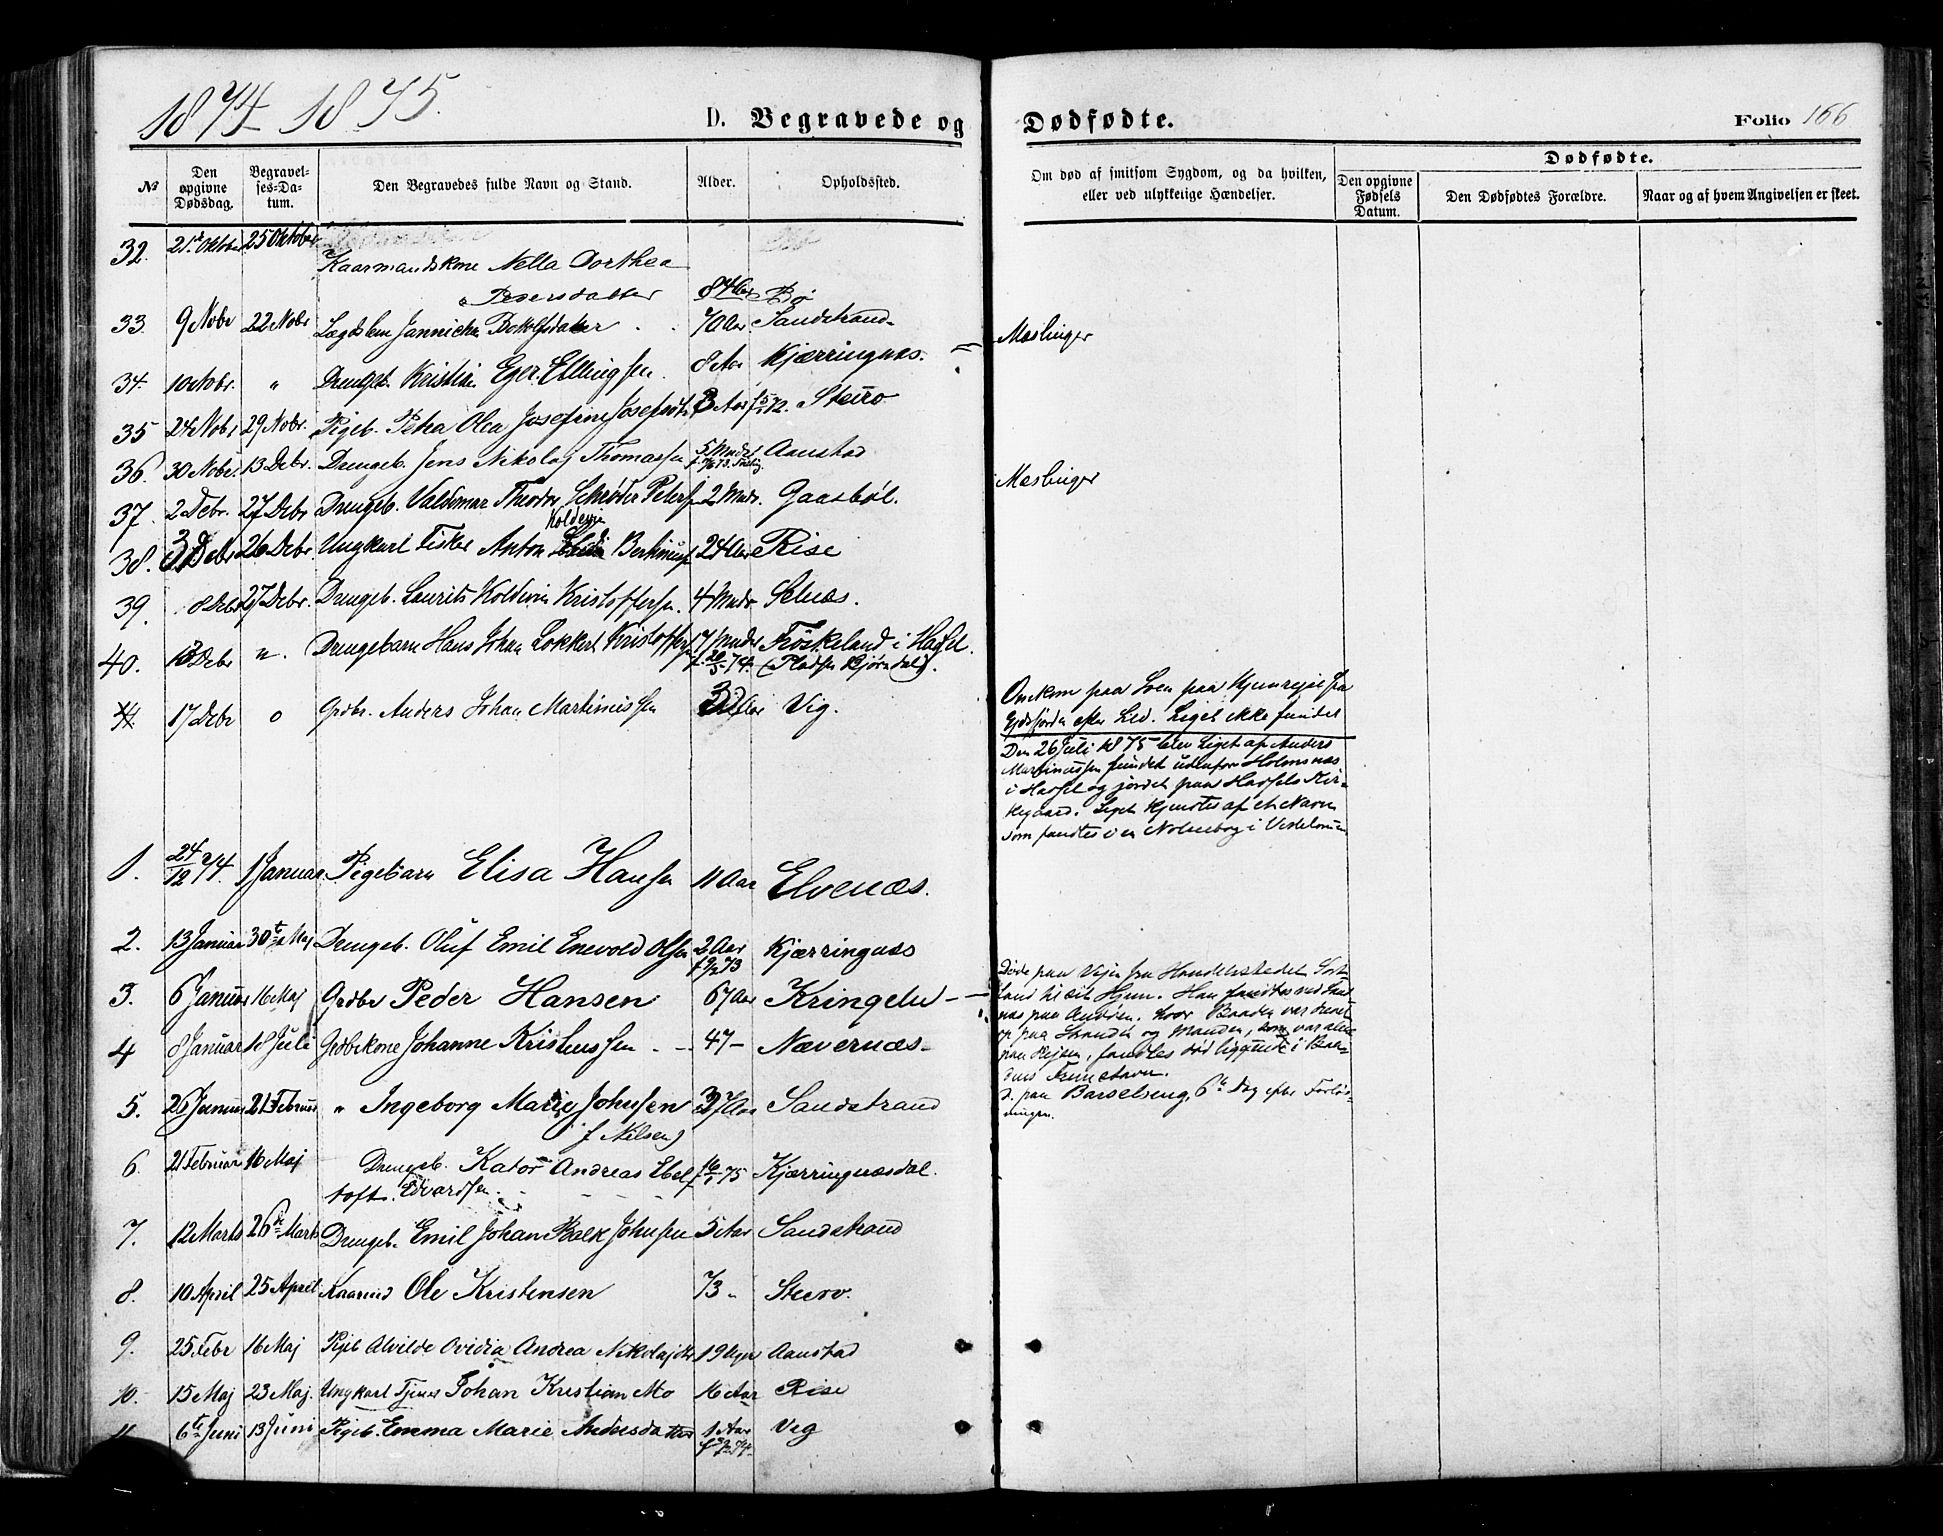 1874-1875.
D. Begravede og Dødfødte.
Folio 166
№
Den opgivne Dødsdag.
Begravelses-Datum.
Den Begravedes fulde Navn og Stand.
Alder.
Opholdssted.
Om død af smitsom Sygdom, og da hvilken, eller ved ulykkelige Hændelser.
Dødfødte.
Den opgivne Fødsels Datum.
Den Dødfødtes Forældre.
Naar og af hvem Angivelsen er skeet.
32. 21de Oktober 25 Oktober
Kaarmandskone Nella Dorthea
Pedersdatter 84 Aar Bø
33. 9 Nobr 22 Nobr Lægdslem Jannicha Botolfsdatter 70 Aar Sandstrand Meslinger
34. 10 Nobr. " Drengeb. Kristian Eger Ellingsen 8 Aar Kjærringnæs.
35 24 Nobr 29 Nobr. Pigeb. Petra Olea Josefine 3 Aar f 5/1 72. Steiro
36. 30 Nobr. 13 Debr. Drengeb. Jens Nikolaj Thomassen 5 Mndr Aanstad Meslinger
37. 2 Debr. 27 Debr Drengeb. Valdemar Theodor Schrøder Peters 2 Mndr. Gaasbøl.
Koldevin
38. 3 Debr 26 Debr Ungkarl Fisker Anton Berthinus 24 Aar Rise
39. 8 Debr 27 Debr. Drengeb. Laurits Koldevin Kristoffersen. 4 Mndr Selnæs.
40. 13 Debr ". Drengebarn Hans Johan Lokkert Kristoffers 7 Mndr Frøskeland i Hassel.
f. 20/5 74. (Pladsen Bjørndal).
41. 17 Debr o Grdbr. Anders Johan Martinussen Aar Vig.
Omkom paa Søen paa Hjemreise fra
Eidsfjorden efter Sild. Liget ikke fundet
Den 26 Juli 1875 blev Liget af Anders
Martinussen fundet udenfor Holmsnæs
i Hassel og jordet paa Hassels Kir-
kegaard. Liget kjendtes af et Navn
som fandtes i en Notebog i Vestelommen
1. 24/12 74. 1 Januar Pigebarn Elisa Hansen 11 Aar Elvenæs.
2. 13 Januar 30te Maj Drengeb. Oluf Emil Enevold Olsen 2 Aar Kjærringnæs
f 9/2 73
3. 6 Januar 16 Maj Grdbr Peder Hansen 67 Aar Kringeln
Døde paa Vejen fra Handelsstedet Sort-
land til sit Hjem. Han fandtes ved
næs paa Andøen, hvor Baaden var drevet
op paa Stranden og Manden, som var alene
paa Rejsen, fandtes død liggende i Baa-
dens Fremstavn.
4 8 Januar 18 Juli Grdbrkone Johanne Kristenssen 47 Nævernæs
5. 26 Januar 21 Februar " Ingeborg Marie Johnsen 32 Aar Sandstrand
f Nilsen)
D. paa Barselseng, 6te Dag efter Forløs-
ningen.
6. 21 Februar 16 Maj Drengeb. Kator Andreas Ebel f 16/1 75 Kjærringnæsdal.
toft. Edvardsen
7. 12 Marts 26de Marts Drengeb. Emil Johan Balk Johnsen 5 Aar Sandstrand
8. 10 April 25 April Kaarmd Ole Kristensen 73 " Steiro.
9. 25 Febr 16 Maj Pigeb Alvilde Ovidia Andrea Nikolajdtr 19 Uger Aanstad
10. 15 Maj 23 Maj. Ungkarl Tjener Johan Kristian Mo 16 Aar Rise
11. 6te Juni 13 Juni Pigeb. Emma Marie Andersdatter 1 Aar Vig